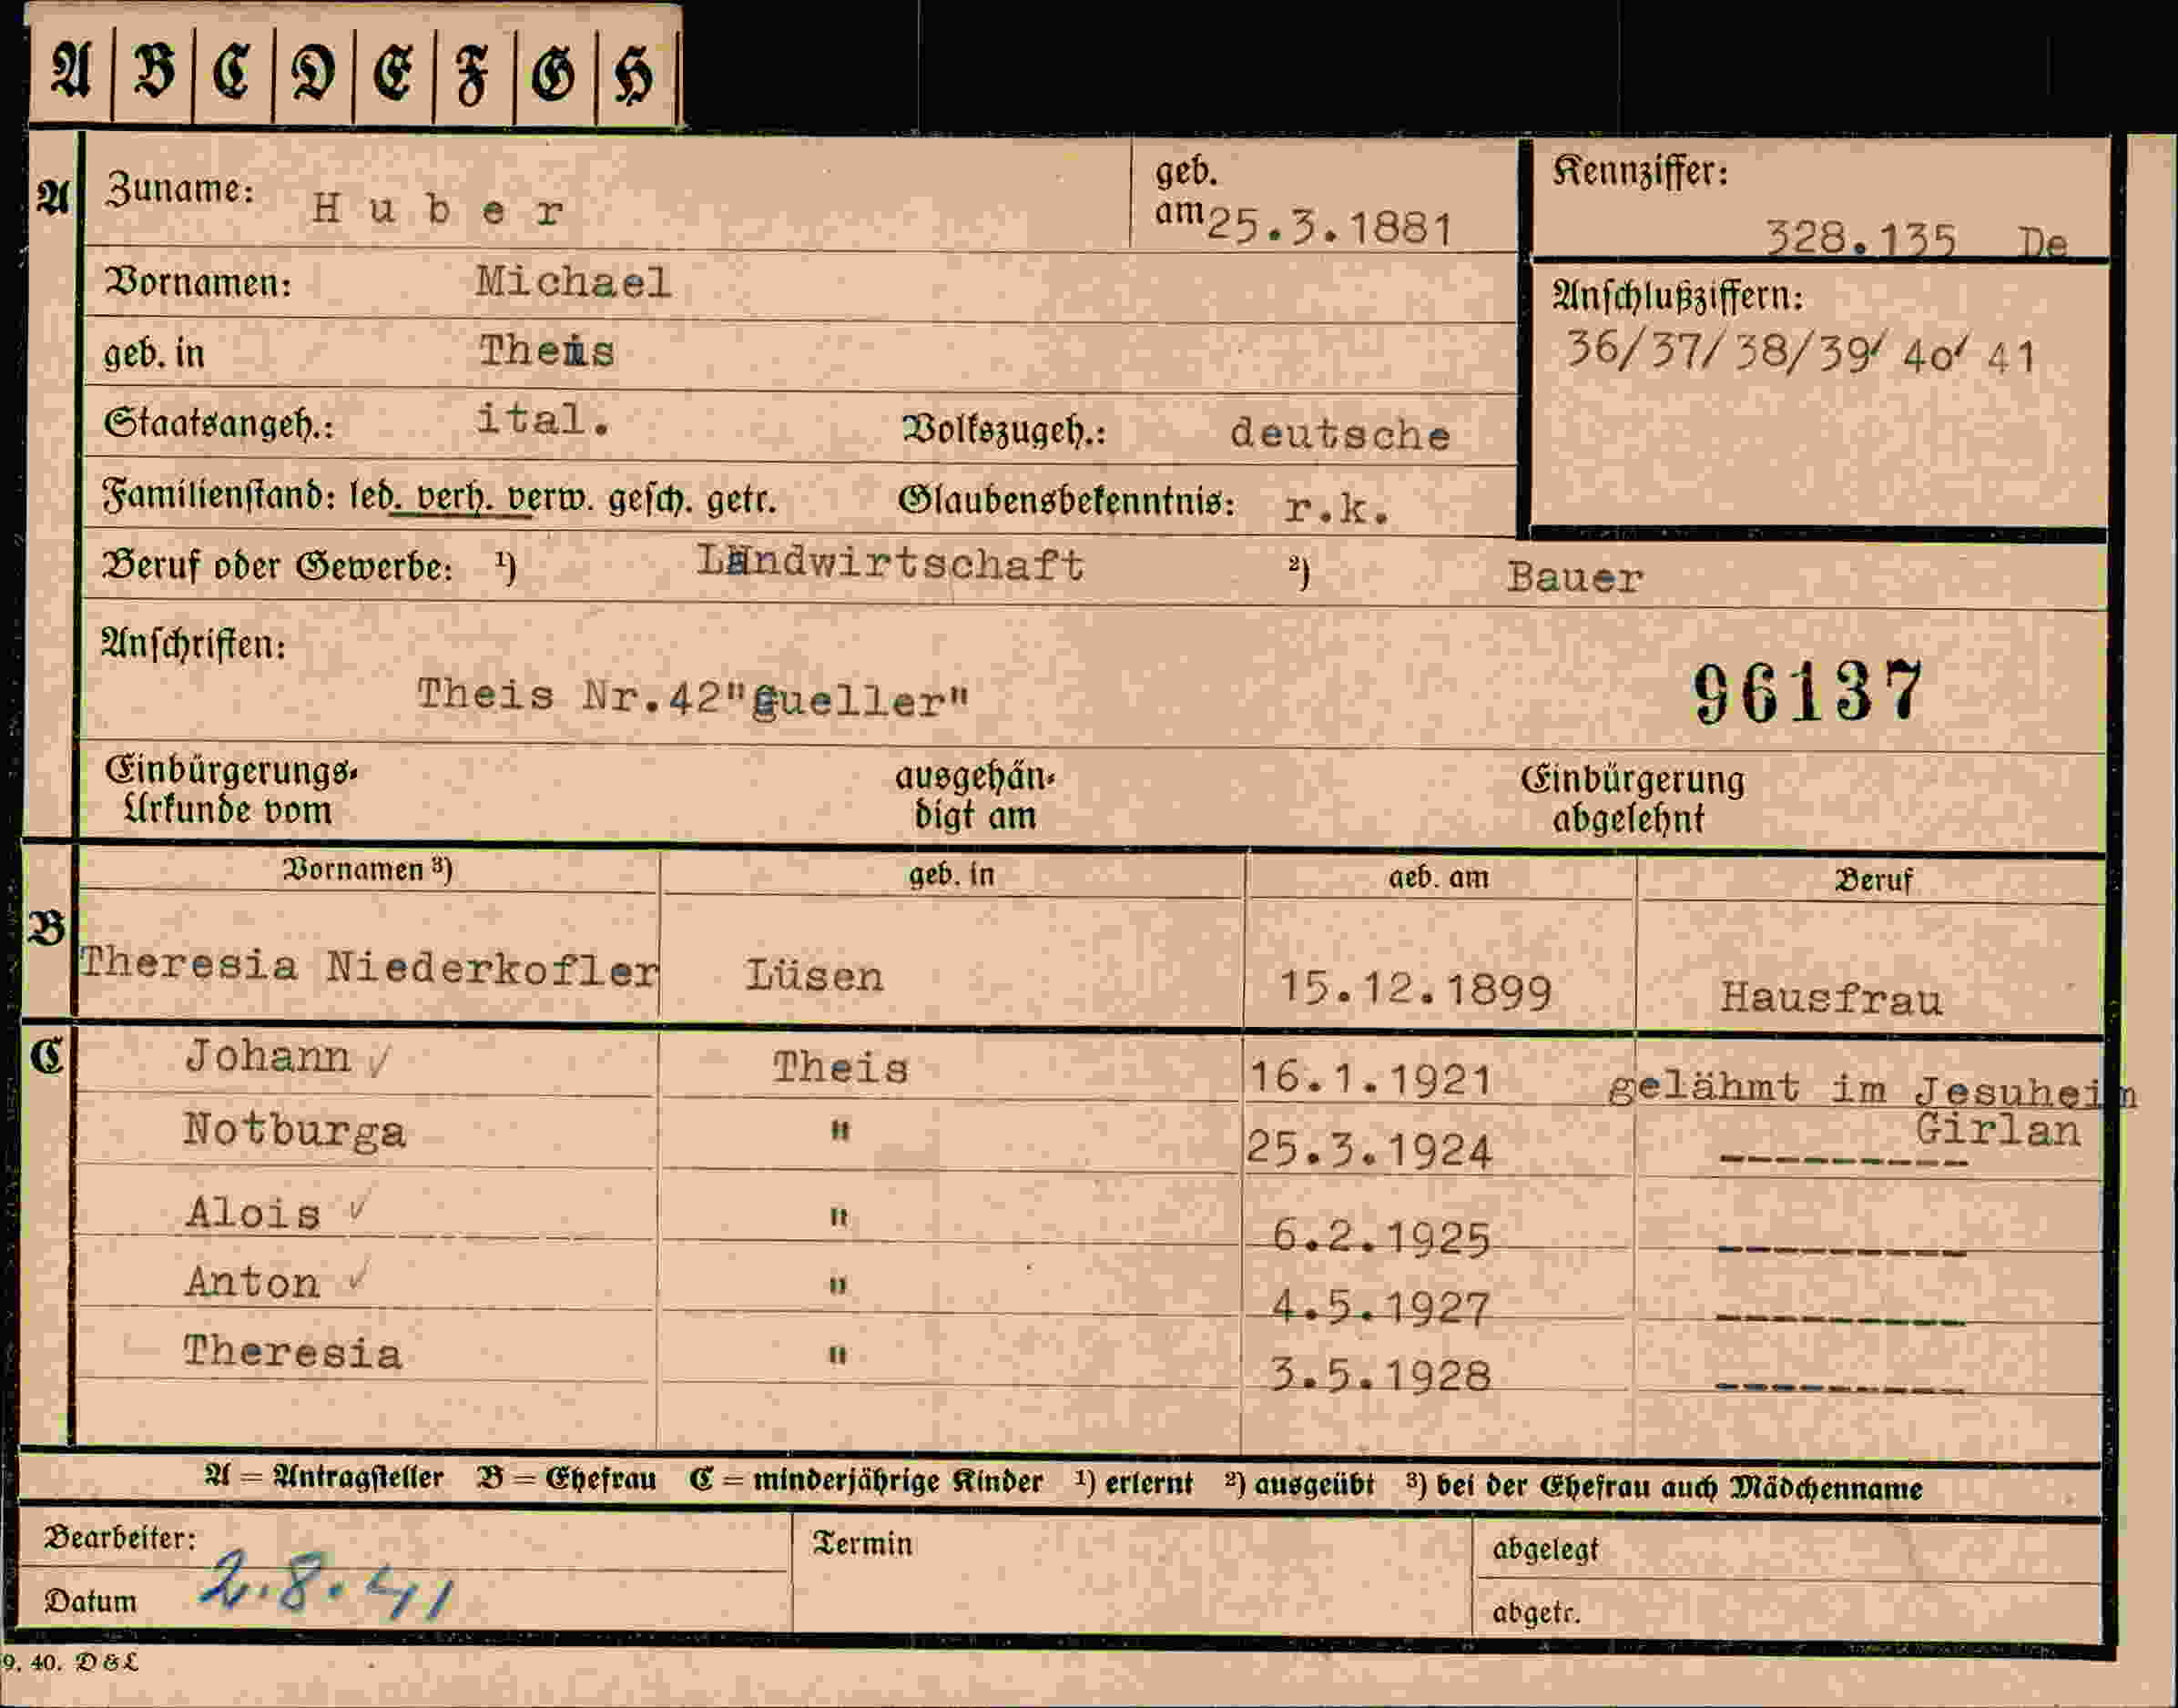 A B C D E F G H
A Zuname: Huber geb. am 25.3.1881 Kennziffer: 328.135 De
Vornamen: Michael
Anschlußziffern:
geb. in Theis 36/37/38/39/ 40/ 41
Staatsangeh.: ital. Volkszugeh.: deutsche
Familienstand: led. verh. verw. gesch. getr. Glaubensbekenntnis: r.k.
Beruf oder Gewerbe: ¹) Landwirtschaft ²) Bauer
Anschriften:
Theis Nr.42"Gueller" 96137
Einbürgerungs- ausgehän- Einbürgerung
Urkunde vom digt am abgelehnt
Vornamen ³) geb. in geb. am Beruf
B Theresia Niederkofler Lüsen 15.12.1899 Hausfrau
C Johann ✓ Theis 16.1.1921 gelähmt im Jesuheim
Girlan
Notburga " 25.3.1924 ---------
Alois ✓ " 6.2.1925 ---------
Anton ✓ " 4.5.1927 ---------
Theresia " 3.5.1928 ---------
A = Antragsteller B = Ehefrau C = minderjährige Kinder ¹) erlernt ²) ausgeübt ³) bei der Ehefrau auch Mädchenname
Bearbeiter: Termin abgelegt
Datum 2.8.41 abgetr.
9. 40. D & L